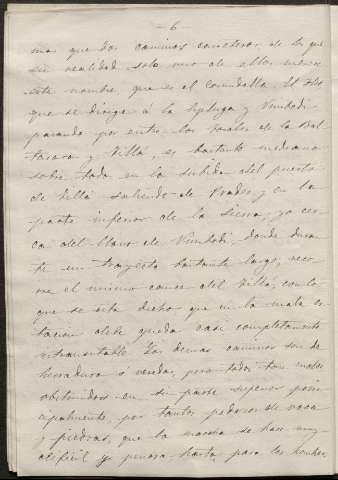 - 6 -
mas que dos caminos carreteros, de los que
en realidad solo uno de ellos merece
este nombre, que es el Comabella. El otro
que se dirige á la Espluga y Vimbodí
pasando por entre los torales de la Bal
tasana y Tillá es bastante mediano
sobre todo en la subida del puerto
de Tillá saliendo de Prades, y en la
parte inferior de la Sierra, ya cer
ca del llano de Vimbodí, donde duran
te un trayecto bastante largo, recor
re el mismo cauce del Tillá, con lo
que se está dicho que en la mala es
tacion este queda casi completamente
intransitable. Los demas caminos son de
herradura ó vereda, pero todos tan malos
obstruidos en su parte superior prin
cipalmente, por tantos pedazos de roca
y piedras, que la marcha se hace muy
dificil y penosa hasta para los hombres,